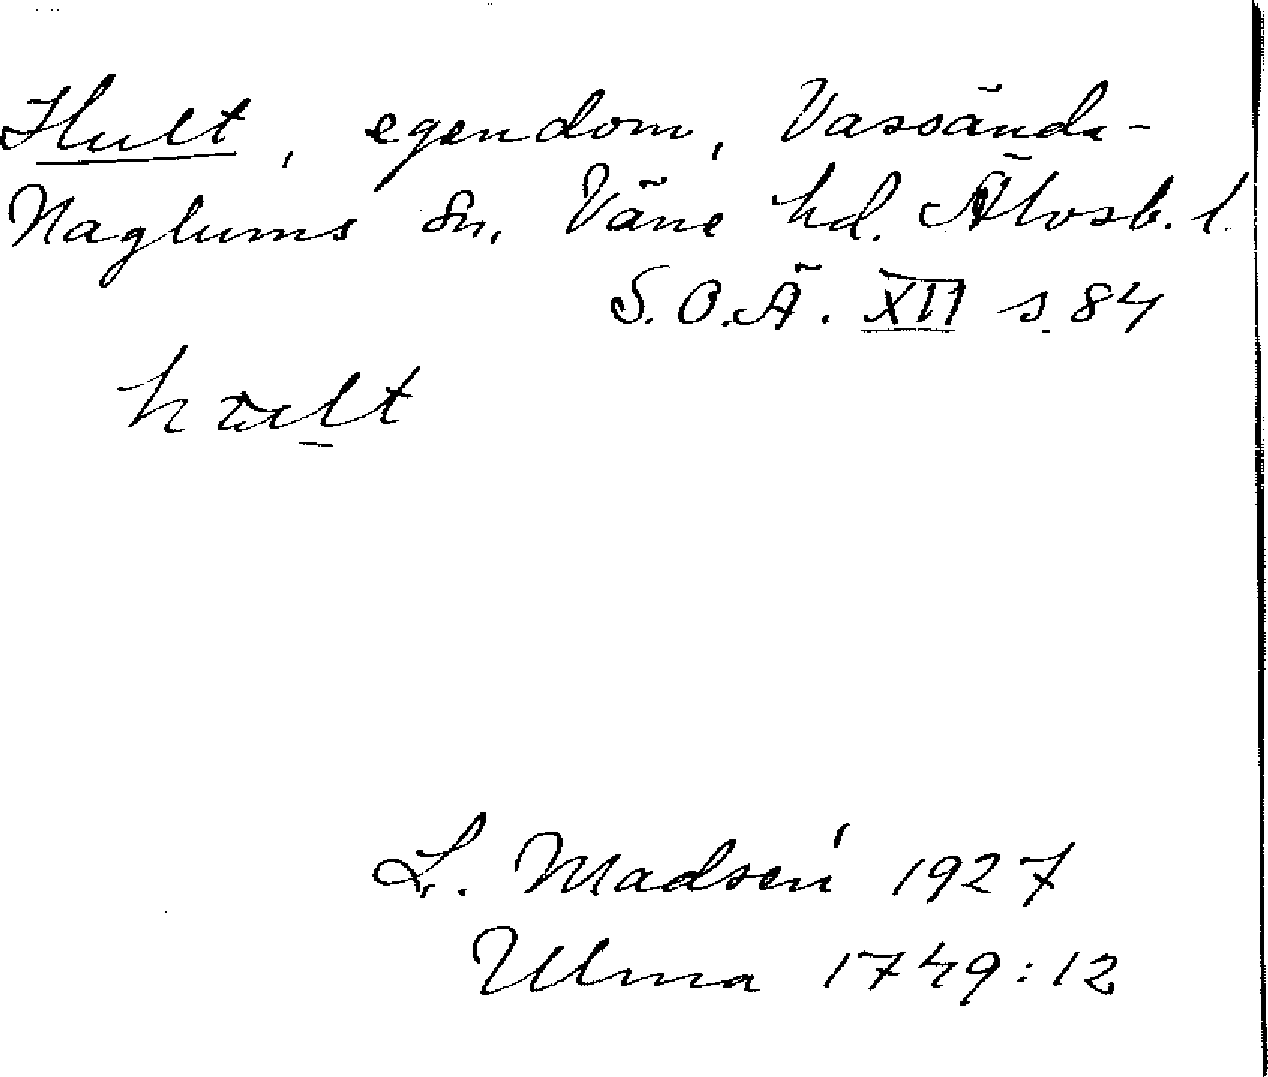 Hult, egendom, Vassända-
Naglums sn, Väne hd. Älvsb. l.
S.O.Ä. XII s. 84
L. Madsén 1927
Ulma 1749:12